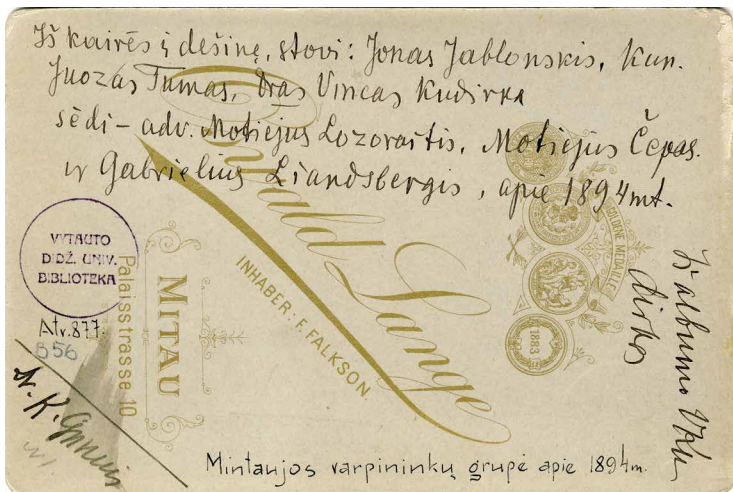 Iš kairės į dešinę, stovi: Jonas Jablonskis, Kun.
Juozas Tumas, dras Vincas Kudirka
sėdi – adv. Motiejus Lozoraitis, Motiejus Čepas.
ir Gabrielius Liandsbergis, apie 1894 mt.
VYTAUTO
DIDŽ. UNIV.
BIBLIOTEKA
Atv. 877.
B56
Lange
INHABER: F. FALKSON.
MITAU
Palaisstrasse 10
GOLDENE MEDAILLE
1883
Iš albumo
Mintaujos varpininkų grupė apie 1894 m.